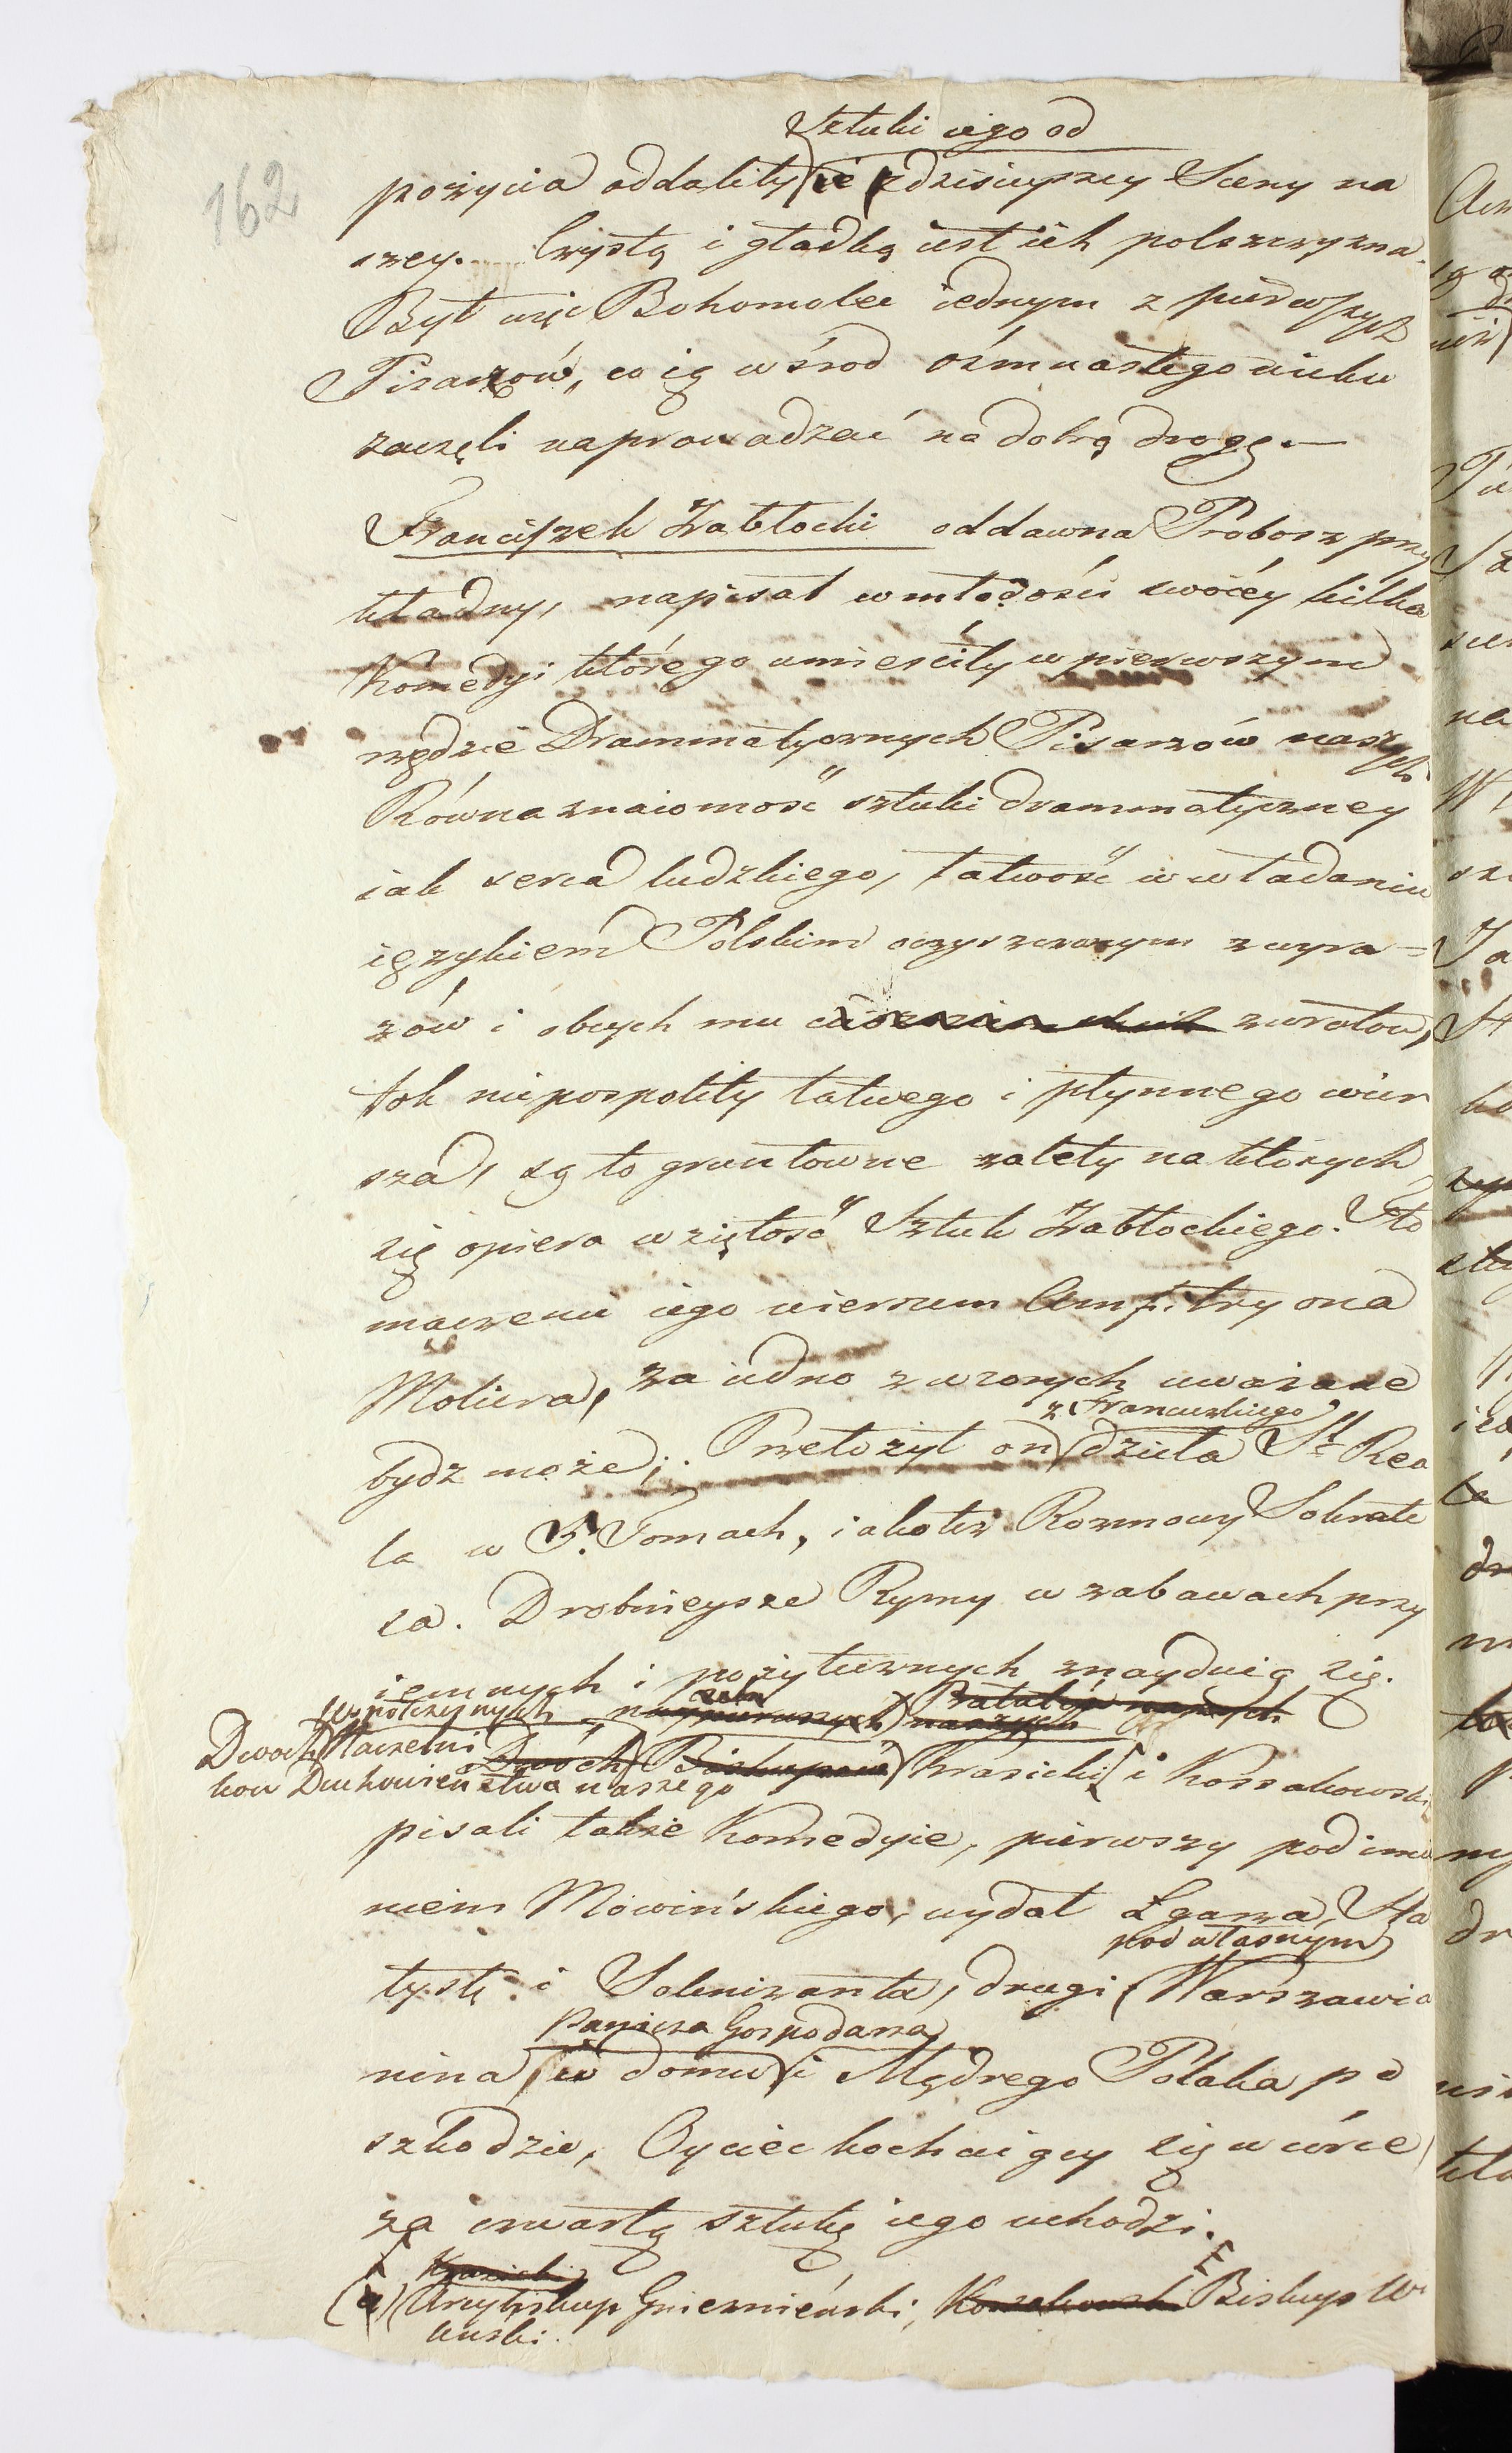 162
Sztuki iego od
pożycia oddaliły się z dzisieyszey Sceny na
szey. Czystą i gładką iest ich polszczyzna.
Był więc Bohomolec iednym z pierwszych
Pisarzów, co ią wśrod ośmnastego wieku
zaczęli naprowadzać na dobrą drogę.—
Franciszek Zabłocki oddawna Proboszcz przy
kładny, napisał w młodości swoiéy kilka
Komedyi którego umieściły w pierwszym
rzędzie Drammatycznych Pisarzów naszych
Równa znaiomość sztuki drammatyczney
iak serca ludzkiego, łatwość w władaniu
ięzykiem Polskim oczyszczonym z wyra=
zów i obcych mu zwrotow,
tok niepospolity łatwego i płynnego wier
sza, są to gruntowne zalety na których
się opiera wziętość Sztuk Zabłockiego. Tło
maczenie iego wierszem Amfitryona
Moliera, za iedno z wzorych uważane
z Francuzkiego
bydz może; Przełożył on dzieła St. Rea
la w 5. Tomach, iakoteż Rozmowy Sokrate
sa. Drobnieysze Rymy w zabawach przy
iemnych i pożytecznych znayduią się.
współczesnych naypierwszych naszych
Dwoch Naczelni Dwóch Biskupów Krasicki i Kossakowski
kow Duchowieństwa naszego
pisali także Komedyie, pierwszy pod imie
niem Mowińskiego, wydał Łgarza, Sta
pod własnym
tystę i Solenizanta, drugi Warszawia
Panicza Gospodarza
nina w domu i Mądrego Polaka po
szkodzie, Oyciec kochaiący się w córce
za czwartą sztukę iego uchodzi.
Krasicki
(a) Arcybiskup Gnieznieński, Kossakowski Biskup W
leński.